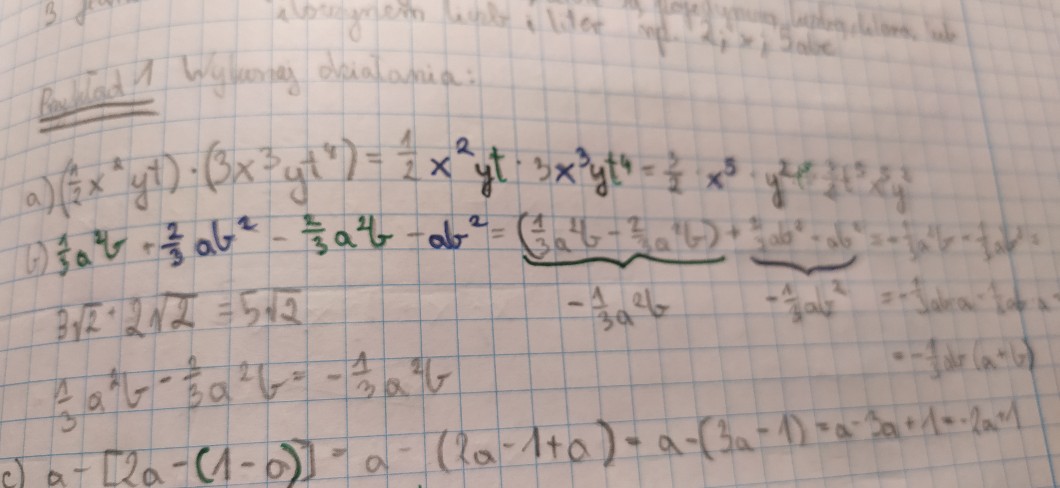 iloczynem liczb i liter np. 2, x, 3abc
Przykład 1 Wykonaj działania:
a) (½x²yt) · (3x³yt⁴) = ½x²yt · 3x³yt⁴ = 3/2 x⁵ · y²
b) ⅓a²b + ⅔ab² - ⅔a²b - ab² = (⅓a²b - ⅔a²b) + ⅔ab² - ab² = -⅓a²b - ⅓ab² =
3√2 + 2√2 = 5√2 -⅓a²b -⅓ab²
= -⅓ab(a+b)
⅓a²b - ⅔a²b = -⅓a²b
c) a - [2a - (1 - a)] = a - (2a - 1 + a) = a - (3a - 1) = a - 3a + 1 = -2a + 1